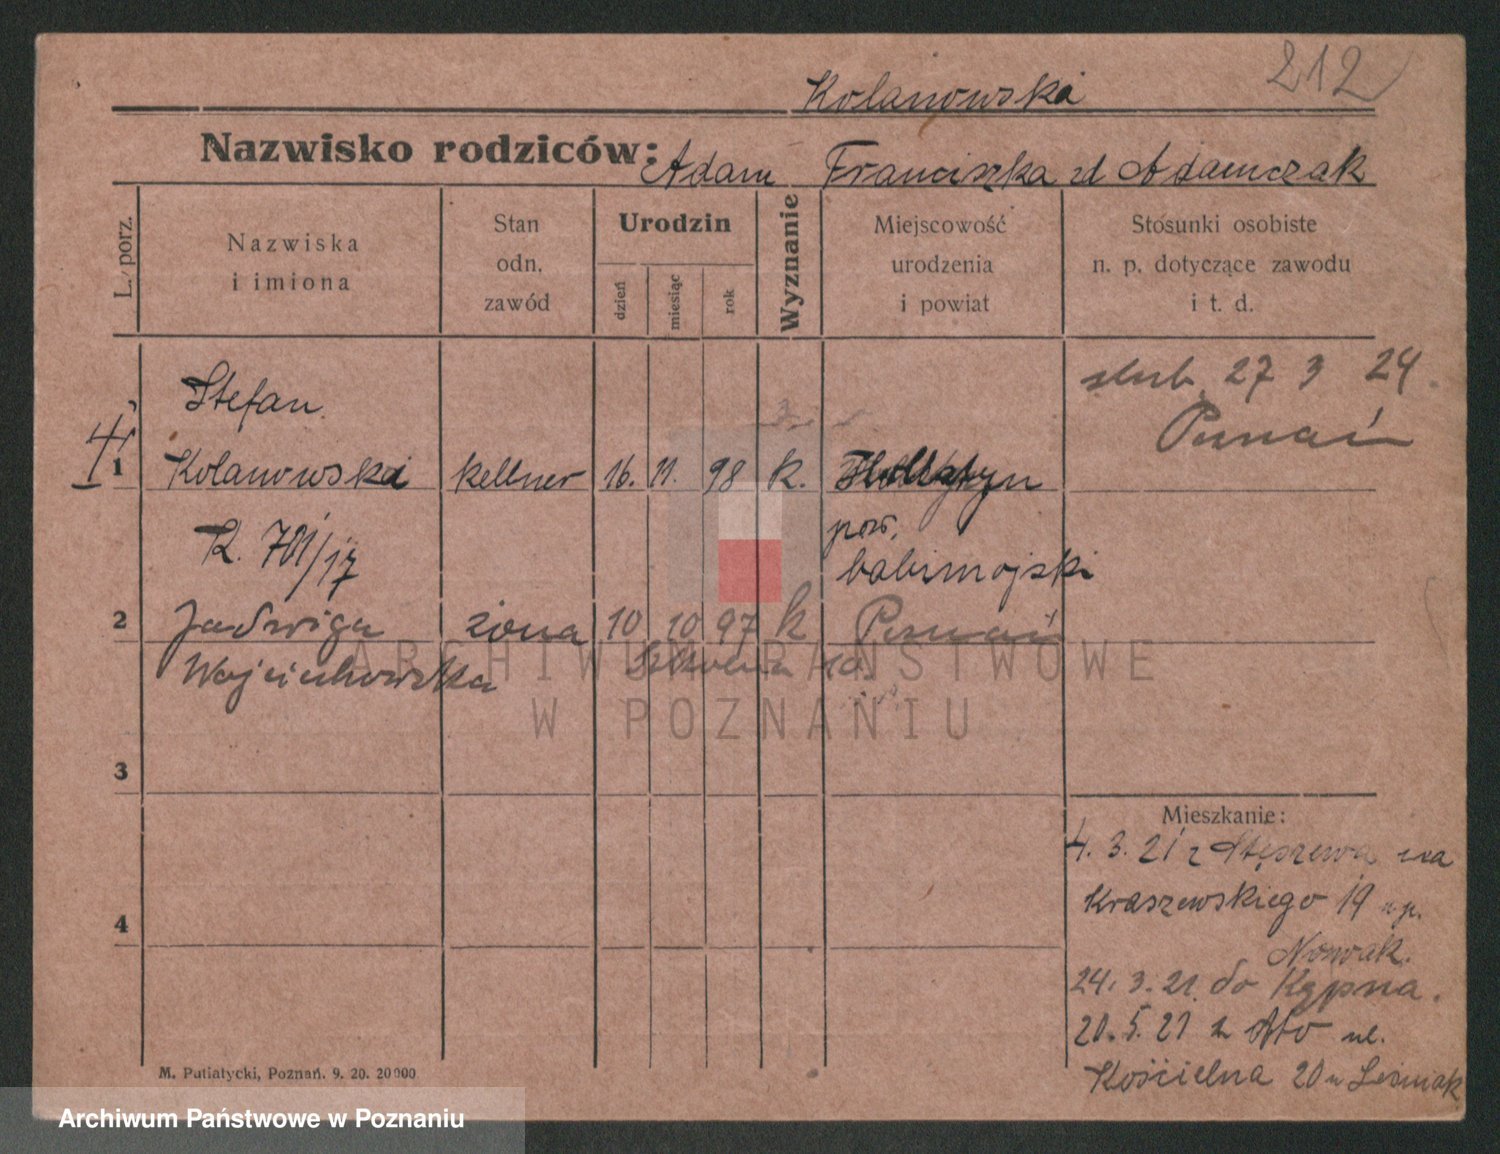 212
Kolanowski
Nazwisko rodziców: Adam Franciszka zd Adamczak
L. porz.
Nazwiska
i imiona
Stan
odn.
zawód
Urodzin
dzień
miesiąc
rok
Wyznanie
Miejscowość
urodzenia
i powiat
Stosunki osobiste
n. p. dotyczące zawodu
i t. d.
ślub 27 3 24.
Poznań
Stefan
1 Kolanowski kellner 16. 11. 98 k.
R. 701/17
pow.
babimojski
2 Jadwiga żona 10 10 97 k Poznań
Wojciechowska 10.
3
4
Mieszkanie:
4. 3. 21 z Stęszewa na
Kraszewskiego 19 u p.
Nowak.
24. 3. 21. do Kępna.
20. 5. 21 z ul.
Kościelna 20 u Leśniak
M. Putiatycki, Poznań. 9. 20. 20000
ARCHIWUM PAŃSTWOWE
W POZNANIU
Archiwum Państwowe w Poznaniu